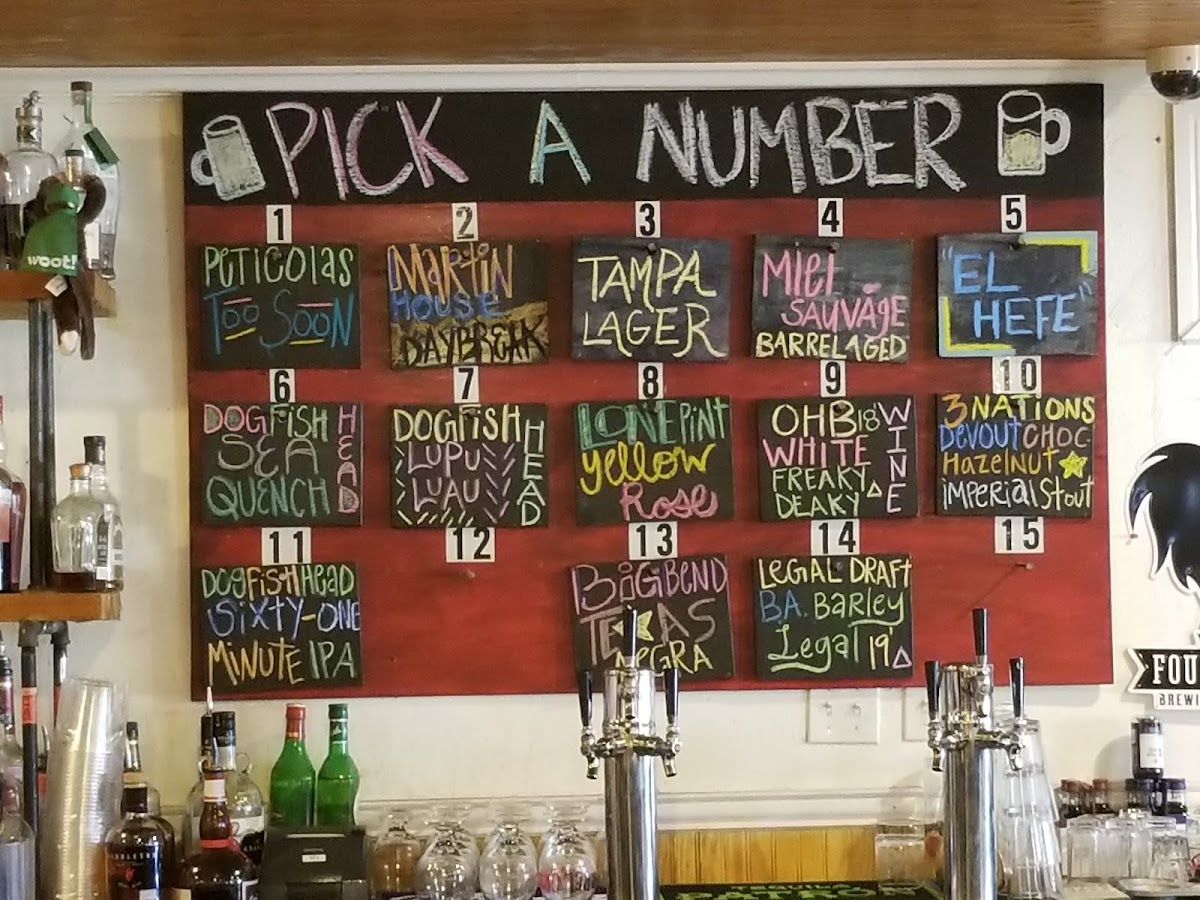 PICK A NUMBER
1
PETICOLAS
TOO SOON
2
MARTIN
HOUSE
DAYBREAK
3
TAMPA
LAGER
4
MIEL
SAUVAGE
BARREL AGED
5
"EL
HEFE"
6
DOGFISH HEAD
SEA
QUENCH
7
DOGFISH HEAD
LUPU
LUAU
8
LONE PINT
YELLOW
Rose
9
OHB 18'
WHITE WINE
FREAKY
DEAKY
10
3 NATIONS
DEVOUT CHOC
HAZELNUT
IMPERIAL STOUT
11
DOGFISH HEAD
SIXTY-ONE
MINUTE IPA
12
13
BIG BEND
TEXAS
NEGRA
14
LEGAL DRAFT
B.A. BARLEY
Legal 19'
15
woot!
FOU
BREWI
TEQUILA